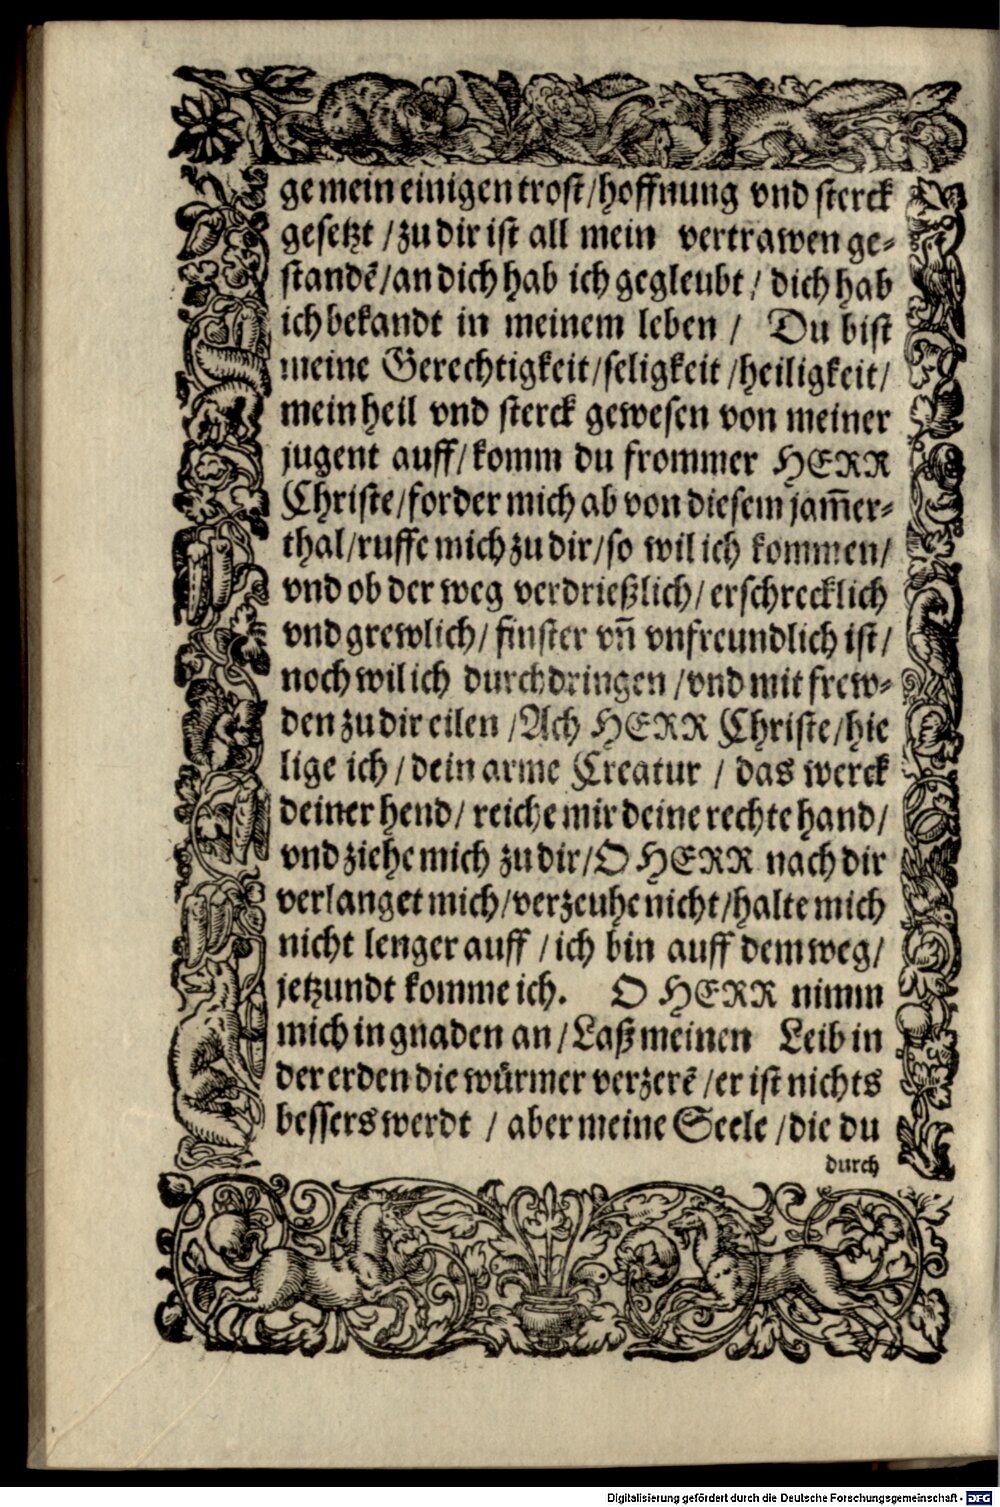 ge mein einigen trost / hoffnung vnd sterck
gesetzt / zu dir ist all mein vertrawen ge-
standē / an dich hab ich gegleubt / dich hab
ich bekandt in meinem leben / Du bist
meine Gerechtigkeit / seligkeit / heiligkeit /
mein heil vnd sterck gewesen von meiner
jugent auff / komm du frommer HERR
Christe / forder mich ab von diesem jam̄er-
thal / ruffe mich zu dir / so wil ich kommen /
vnd ob der weg verdrießlich / erschrecklich
vnd grewlich / finster vn̄ vnfreundlich ist /
noch wil ich durchdringen / vnd mit frew-
den zu dir eilen / Ach HERR Christe / hie
lige ich / dein arme Creatur / das werck
deiner hend / reiche mir deine rechte hand /
vnd ziehe mich zu dir / O HERR nach dir
verlanget mich / verzeuhe nicht / halte mich
nicht lenger auff / ich bin auff dem weg /
jetzundt komme ich. O HERR nimm
mich in gnaden an / Laß meinen Leib in
der erden die würmer verzerē / er ist nichts
bessers werdt / aber meine Seele / die du
durch
Digitalisierung gefördert durch die Deutsche Forschungsgemeinschaft - DFG